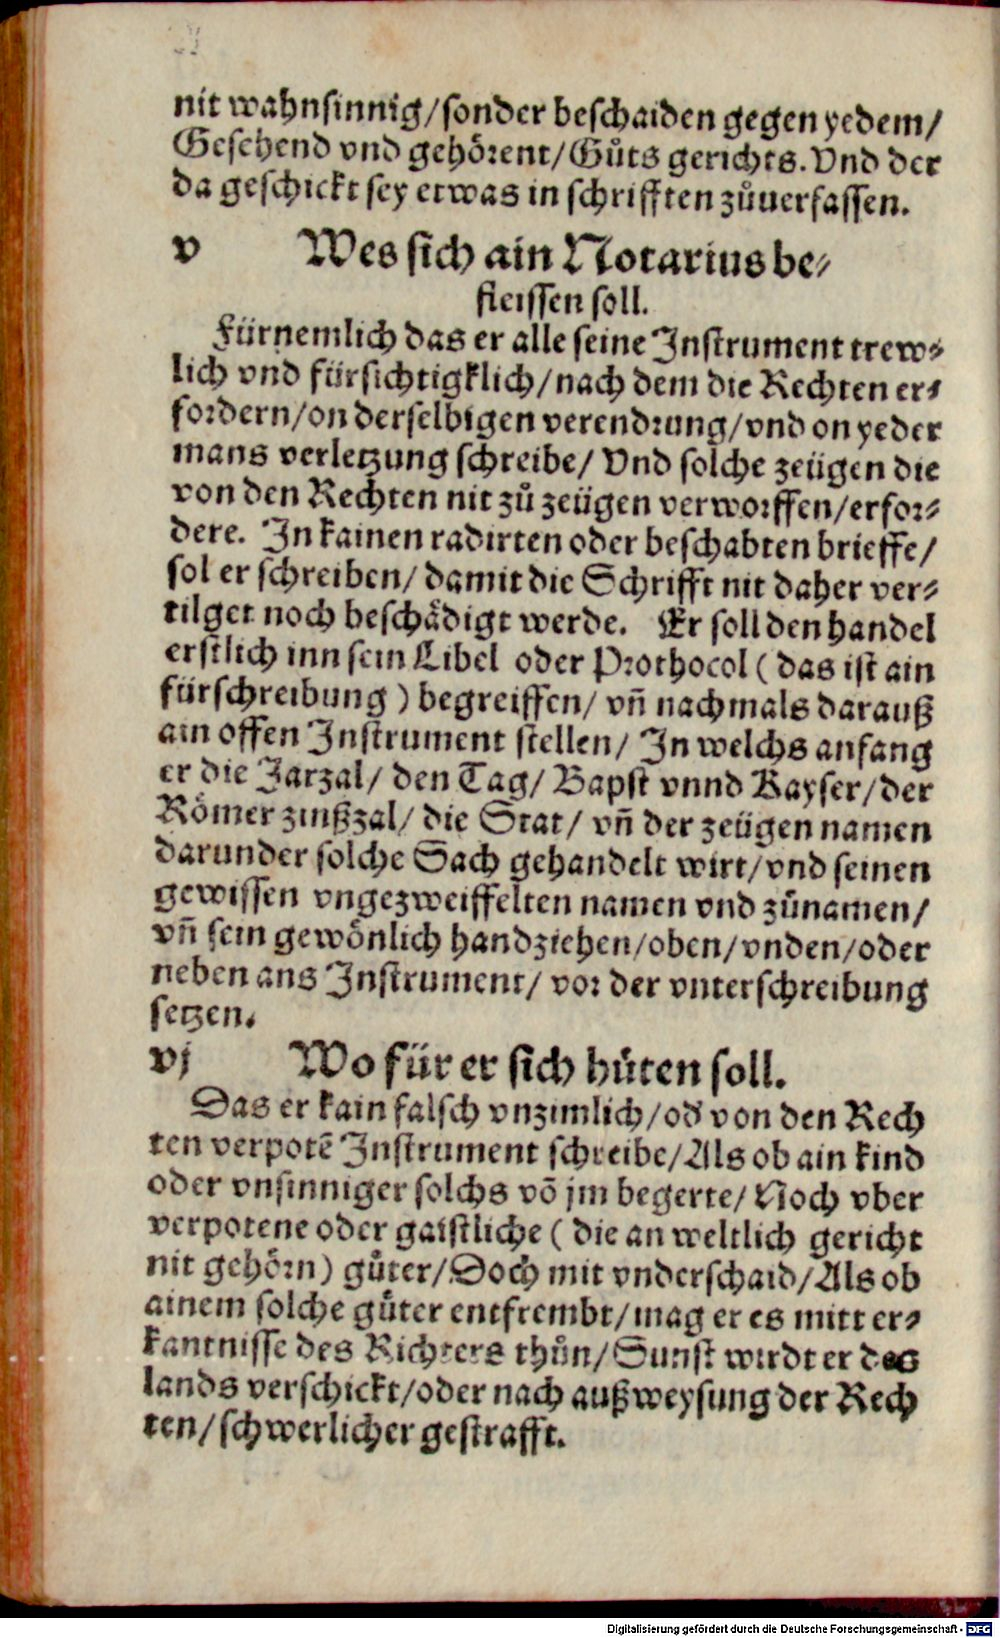 nit wahnsinnig/sonder beschaiden gegen yedem/
Gesehend vnd gehörent/Gůts gerichts. Vnd der
da geschickt sey etwas in schrifften zůuerfassen.
v Wes sich ain Notarius be-
fleissen soll.
Fürnemlich das er alle seine Instrument trew-
lich vnd fürsichtigklich/nach dem die Rechten er-
fordern/on derselbigen verendrung/vnd on yeder
mans verletzung schreibe/ Vnd solche zeügen die
von den Rechten nit zů zeügen verworffen/erfor-
dere. In kainen radirten oder beschabten brieffe/
sol er schreiben/ damit die Schrifft nit daher ver-
tilget noch beschådigt werde. Er soll den handel
erstlich inn sein Libel oder Prothocol ( das ist ain
fürschreibung ) begreiffen/ vñ nachmals darauß
ain offen Instrument stellen/ In welchs anfang
er die Jarzal/ den Tag/ Bapst vnnd Kayser/der
Römer zinßzal/ die Stat/ vñ der zeügen namen
darunder solche Sach gehandelt wirt/vnd seinen
gewissen vngezweiffelten namen vnd zůnamen/
vñ sein gewönlich handziehen/oben/vnden/oder
neben ans Instrument/ vor der vnterschreibung
setzen.
vj Wo für er sich hůten soll.
Das er kain falsch vnzimlich/od von den Rech
ten verpotē Instrument schreibe/Als ob ain kind
oder vnsinniger solchs vō jm begerte/ Noch vber
verpotene oder gaistliche ( die an weltlich gericht
nit gehörn) gůter/Doch mit vnderschaid/Als ob
ainem solche gůter entfrembt/mag er es mitt er-
kantnisse des Richters thůn/Sunst wirdt er des
lands verschickt/oder nach außweysung der Rech
ten/schwerlicher gestrafft.
Digitalisierung gefördert durch die Deutsche Forschungsgemeinschaft - DFG